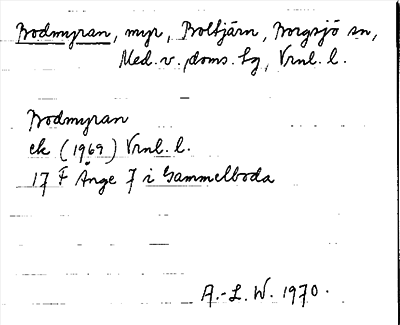 Bodmyran, myr, Boltjärn, Borgsjö sn,
Med. v. doms. lg, Vrnl. l.
Bodmyran
ek (1969) Vrnl. l.
17 F Ånge 7 i Gammelboda
A.-L. W. 1970.